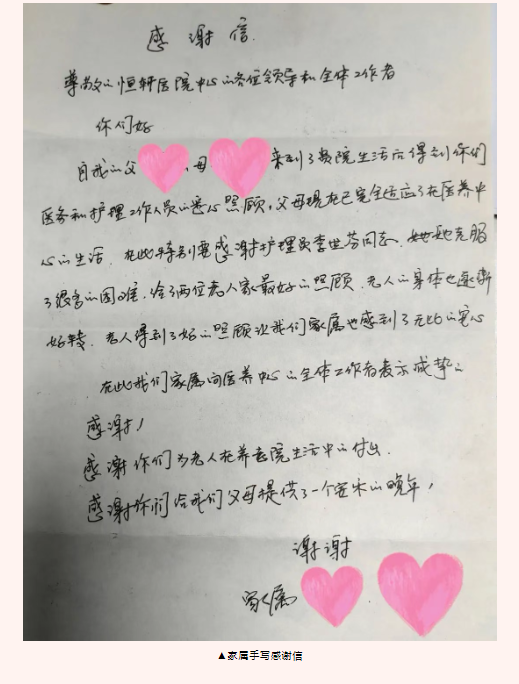 感谢信.
尊敬的恒轩医院中心的各位领导和全体工作者
你们好
自我的父 ,母 来到了贵院生活后得到你们
医务和护理工作人员的悉心照顾,父母现在已完全适应了在医养中
心的生活. 在此特别要感谢护理员李世芬同志. 她克服
了很多的困难. 给了两位老人家最好的照顾. 老人的身体也逐渐
好转. 老人得到了好的照顾让我们家属也感到了无比的安心
在此我们家属向医养中心的全体工作者表示诚挚的
感谢!
感谢你们为老人在养老院生活中的付出.
感谢你们给我们父母提供了一个安乐的晚年!
谢谢
家属
▲家属手写感谢信